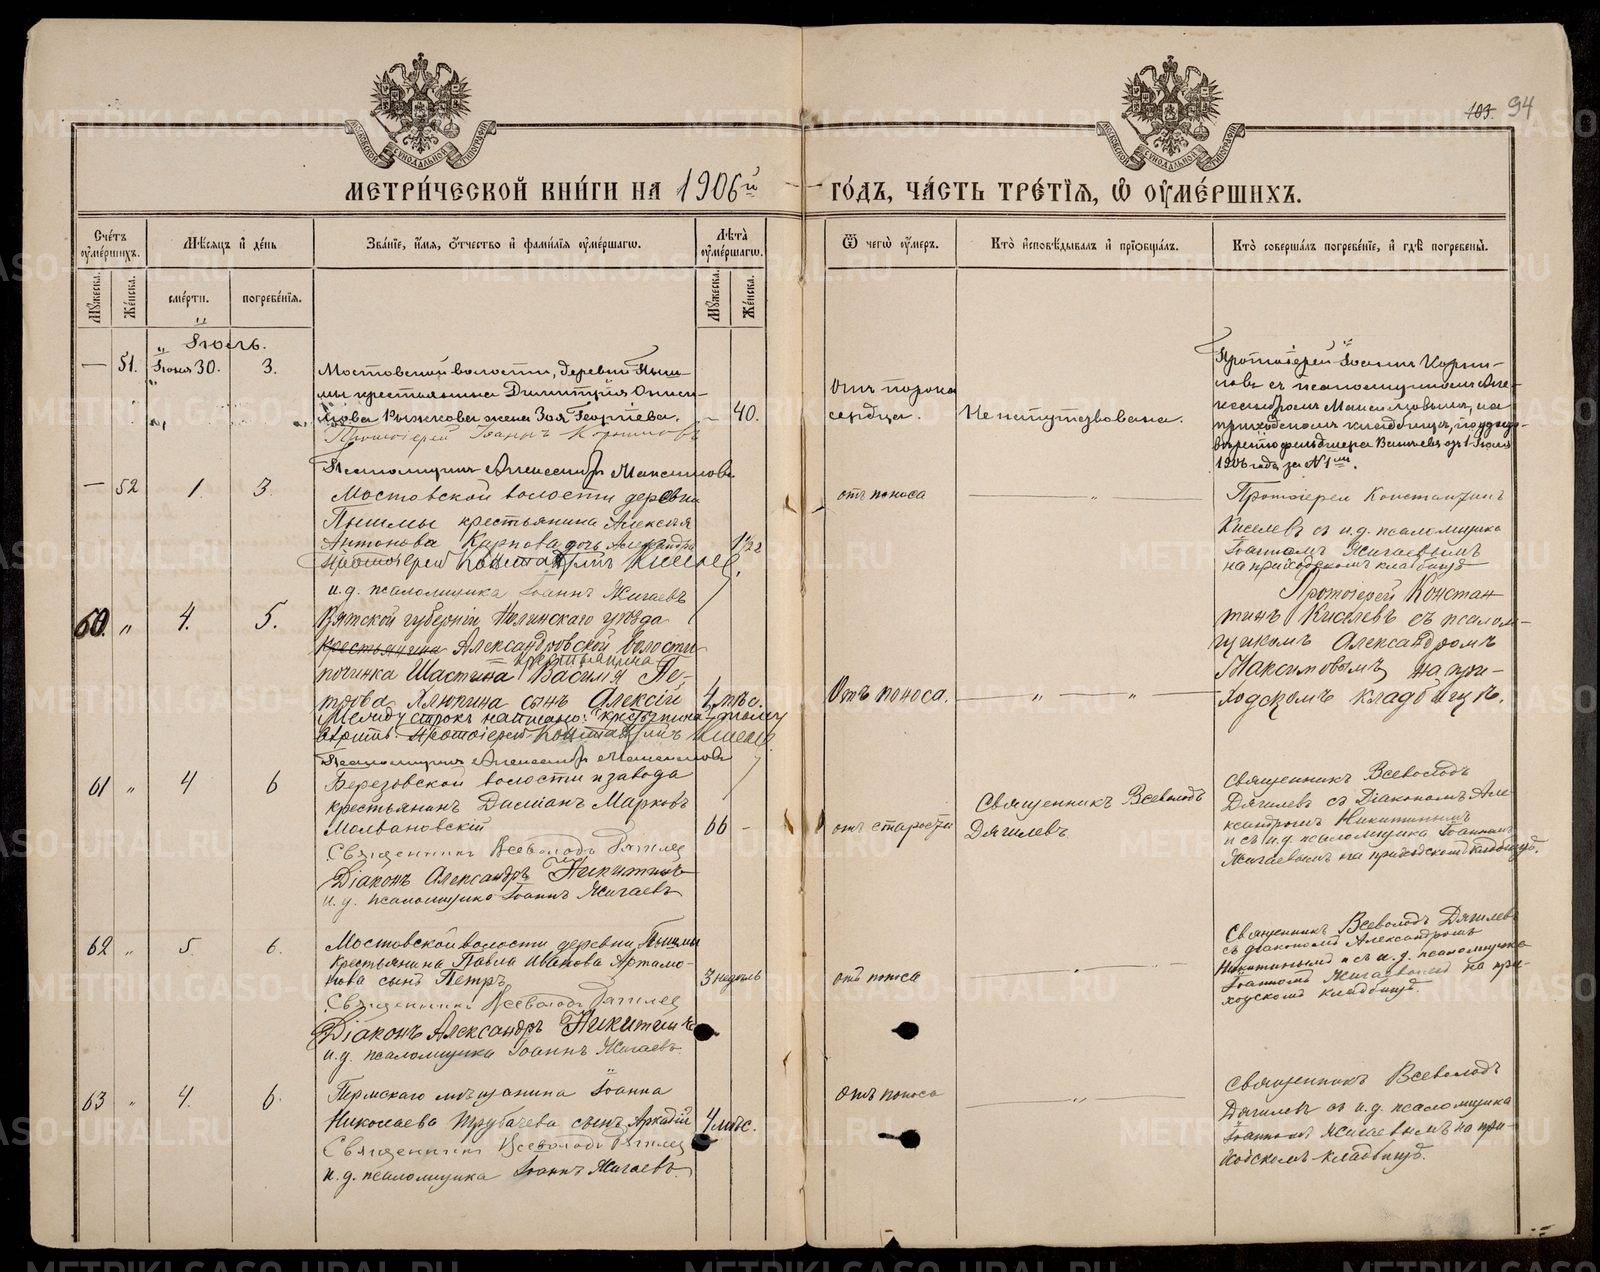 103. 94
МОСКОВСКОЙ СѴНОДАЛЬНОЙ ТИПОГРАФІИ
МОСКОВСКОЙ СѴНОДАЛЬНОЙ ТИПОГРАФІИ
МЕТРИ́ЧЕСКОЙ КНИ́ГИ НА 1906й ГО́ДЪ, ЧА́СТЬ ТРЕ́ТІѦ, Ѡ ОУМЕ́РШИХЪ.
Сче́тъ оуме́ршихъ.
Мѣсѧцъ и де́нь
Зва́ніе, и́мѧ, о́тчество и фами́лїѧ оуме́ршагѡ.
Лѣ́та оуме́ршагѡ.
Ѿ чегѡ̀ оу́меръ.
Кто̀ исповѣ́дывалъ и прїобща́лъ.
Кто̀ соверша́лъ погребе́нїе, и гдѣ̀ погребены̀.
Мꙋ́жеска.
Же́нска.
сме́рти.
погребе́нїѧ.
Мꙋ́жеска.
Же́нска.
Іюль.
— 51. Іюня 30. 3.
Мостовской волости, деревни Пыш-
мы крестьянина Димитрія Ониси-
мова Рыжкова жена Зоя Георгіева. — 40.
Протоіерей Іоаннъ Корниловъ
Псаломщикъ Александръ Максимовъ
Отъ порока
сердца.
Не напутствована.
Протоіерей Іоаннъ Корни-
ловъ съ псаломщикомъ Але-
ксандромъ Максимовымъ, на
приходскомъ кладбищѣ, по удосто-
1906 года за № 1мъ.
— 52 1. 3.
Мостовской волости деревни
Пышмы крестьянина Алексѣя
Антонова Карпова дочь Александра 1 1/2
Протоіерей Константинъ Киселевъ
и. д. псаломщика Іоаннъ Жигаевъ
отъ поноса — " —
Протоіерей Константинъ
Киселевъ съ и. д. псаломщика
Іоанномъ Жигаевымъ
на приходскомъ кладбищѣ
60. " 4. 5.
Вятской губерніи Нолинскаго уѣзда
крестьянина Александровской волости
крестьянина
починка Шастина Василія Пе-
трова Хлюпина сынъ Алексій 4 мѣс.
Между строкъ написано: "крестьянина" тому
вѣрить. Протоіерей Константинъ Киселевъ
Псаломщикъ Александръ Максимовъ
Отъ поноса. — " — " —
Протоіерей Констан
тинъ Киселевъ съ псалом-
щикомъ Александромъ
Максимовымъ на при-
ходскомъ кладбищѣ.
61 " 4 6
Березовской волости и завода
крестьянинъ Даміанъ Марковъ
Молвановскій 66 -
Священникъ Всеволодъ Дягилевъ
Діаконъ Александръ Никитинъ
и. д. псаломщика Іоаннъ Жигаевъ
отъ старости
Священникъ Всеволодъ
Дягилевъ
Священникъ Всеволодъ
Дягилевъ съ Діакономъ Але-
ксандромъ Никитинымъ
и съ и. д. псаломщика Іоанномъ
Жигаевымъ на приходскомъ кладбищѣ.
62 " 5. 6.
Мостовской волости деревни Пышмы
крестьянина Павла Иванова Артамо-
нова сынъ Петръ 3 недѣль
Священникъ Всеволодъ Дягилевъ
Діаконъ Александръ Никитинъ
и. д. псаломщика Іоаннъ Жигаевъ
отъ поноса — " —
Священникъ Всеволодъ Дягилевъ
съ діакономъ Александромъ
Никитинымъ и съ и. д. псаломщика
Іоанномъ Жигаевымъ на при-
ходскомъ кладбищѣ.
63 " 4. 6.
Пермскаго мѣщанина Іоанна
Николаева Трубачева сынъ Аркадій 4 мѣс.
Священникъ Всеволодъ Дягилевъ
и. д. псаломщика Іоаннъ Жигаевъ.
Отъ поноса — " —
Священникъ Всеволодъ
Дягилевъ съ и. д. псаломщика
Іоанномъ Жигаевымъ на при-
ходскомъ кладбищѣ.
METRIKI.GASO-URAL.RU